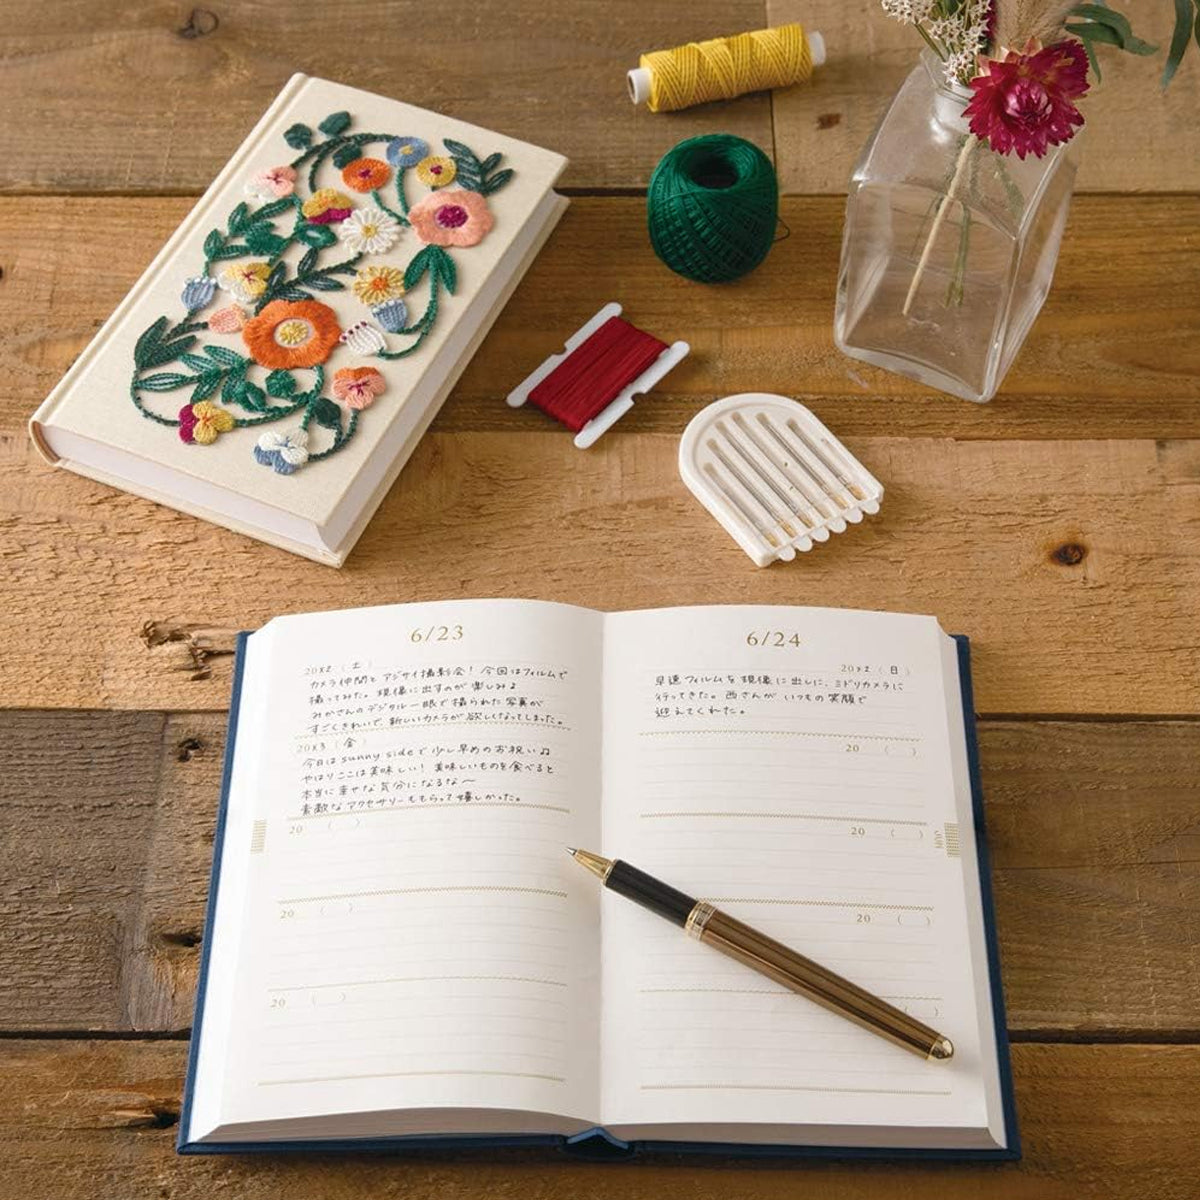 6/23
20X2 (土)
カメラ仲間と アジサイ撮影会! 今回はフィルムで
撮ってみた。現像に出すのが楽しみ♪
みかさんのデジタル一眼で撮られた写真が
すごくきれいで、新しいカメラが欲しくなってしまった。
20X3 (金)
今日はsunny sideで少し早めのお祝い♫
やはりここは美味しい! 美味しいものを食べると
本当に幸せな気分になるな〜
素敵なアクセサリーももらって嬉しかった。
20 ( )
20 ( )
20 ( )
6/24
20X2 (日)
早速フィルムを現像に出しに、ミドリカメラに
行ってきた。西さんがいつもの笑顔で
迎えてくれた。
20 ( )
20 ( )
20 ( )
( )
JUN